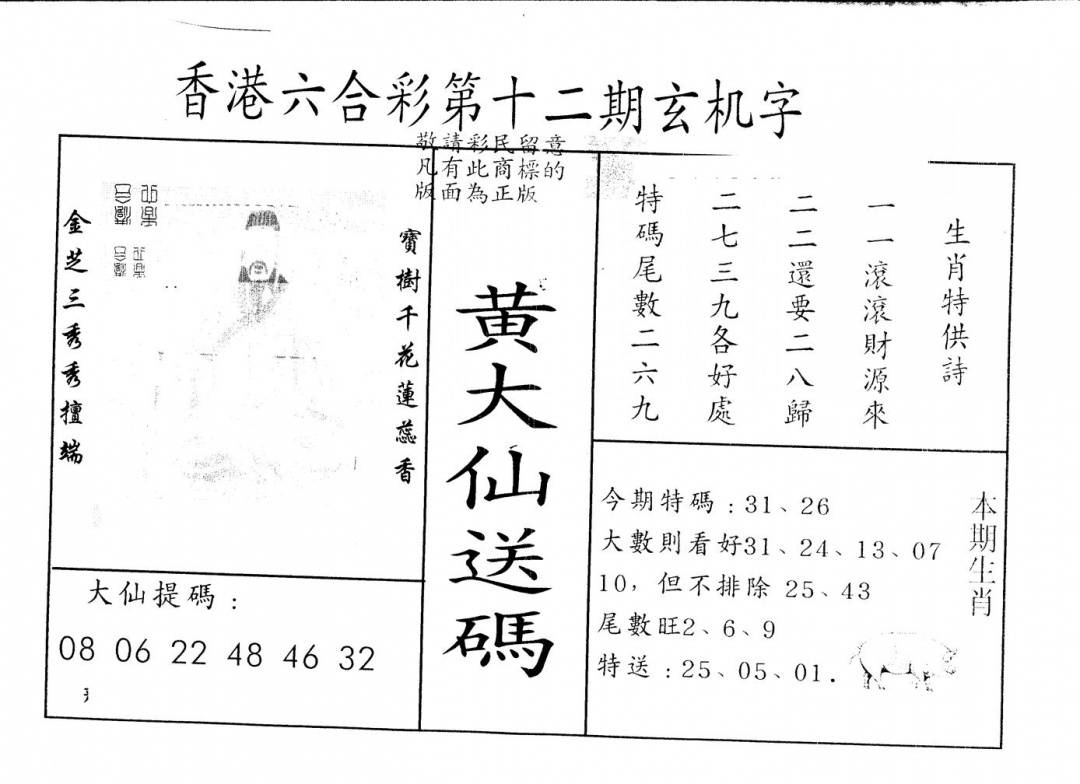 香港六合彩第十二期玄机字
敬請彩民留意
凡有此商標的
版面為正版
生肖特供詩
一一滾滾財源來
二二還要二八歸
二七三九各好處
特碼尾數二六九
黄大仙送碼
寶樹千花蓮蕊香
金芝三秀秀擅端
大仙提碼：
08 06 22 48 46 32
本期生肖
今期特碼：31、26
大數則看好31、24、13、07
10，但不排除 25、43
尾數旺2、6、9
特送：25、05、01．